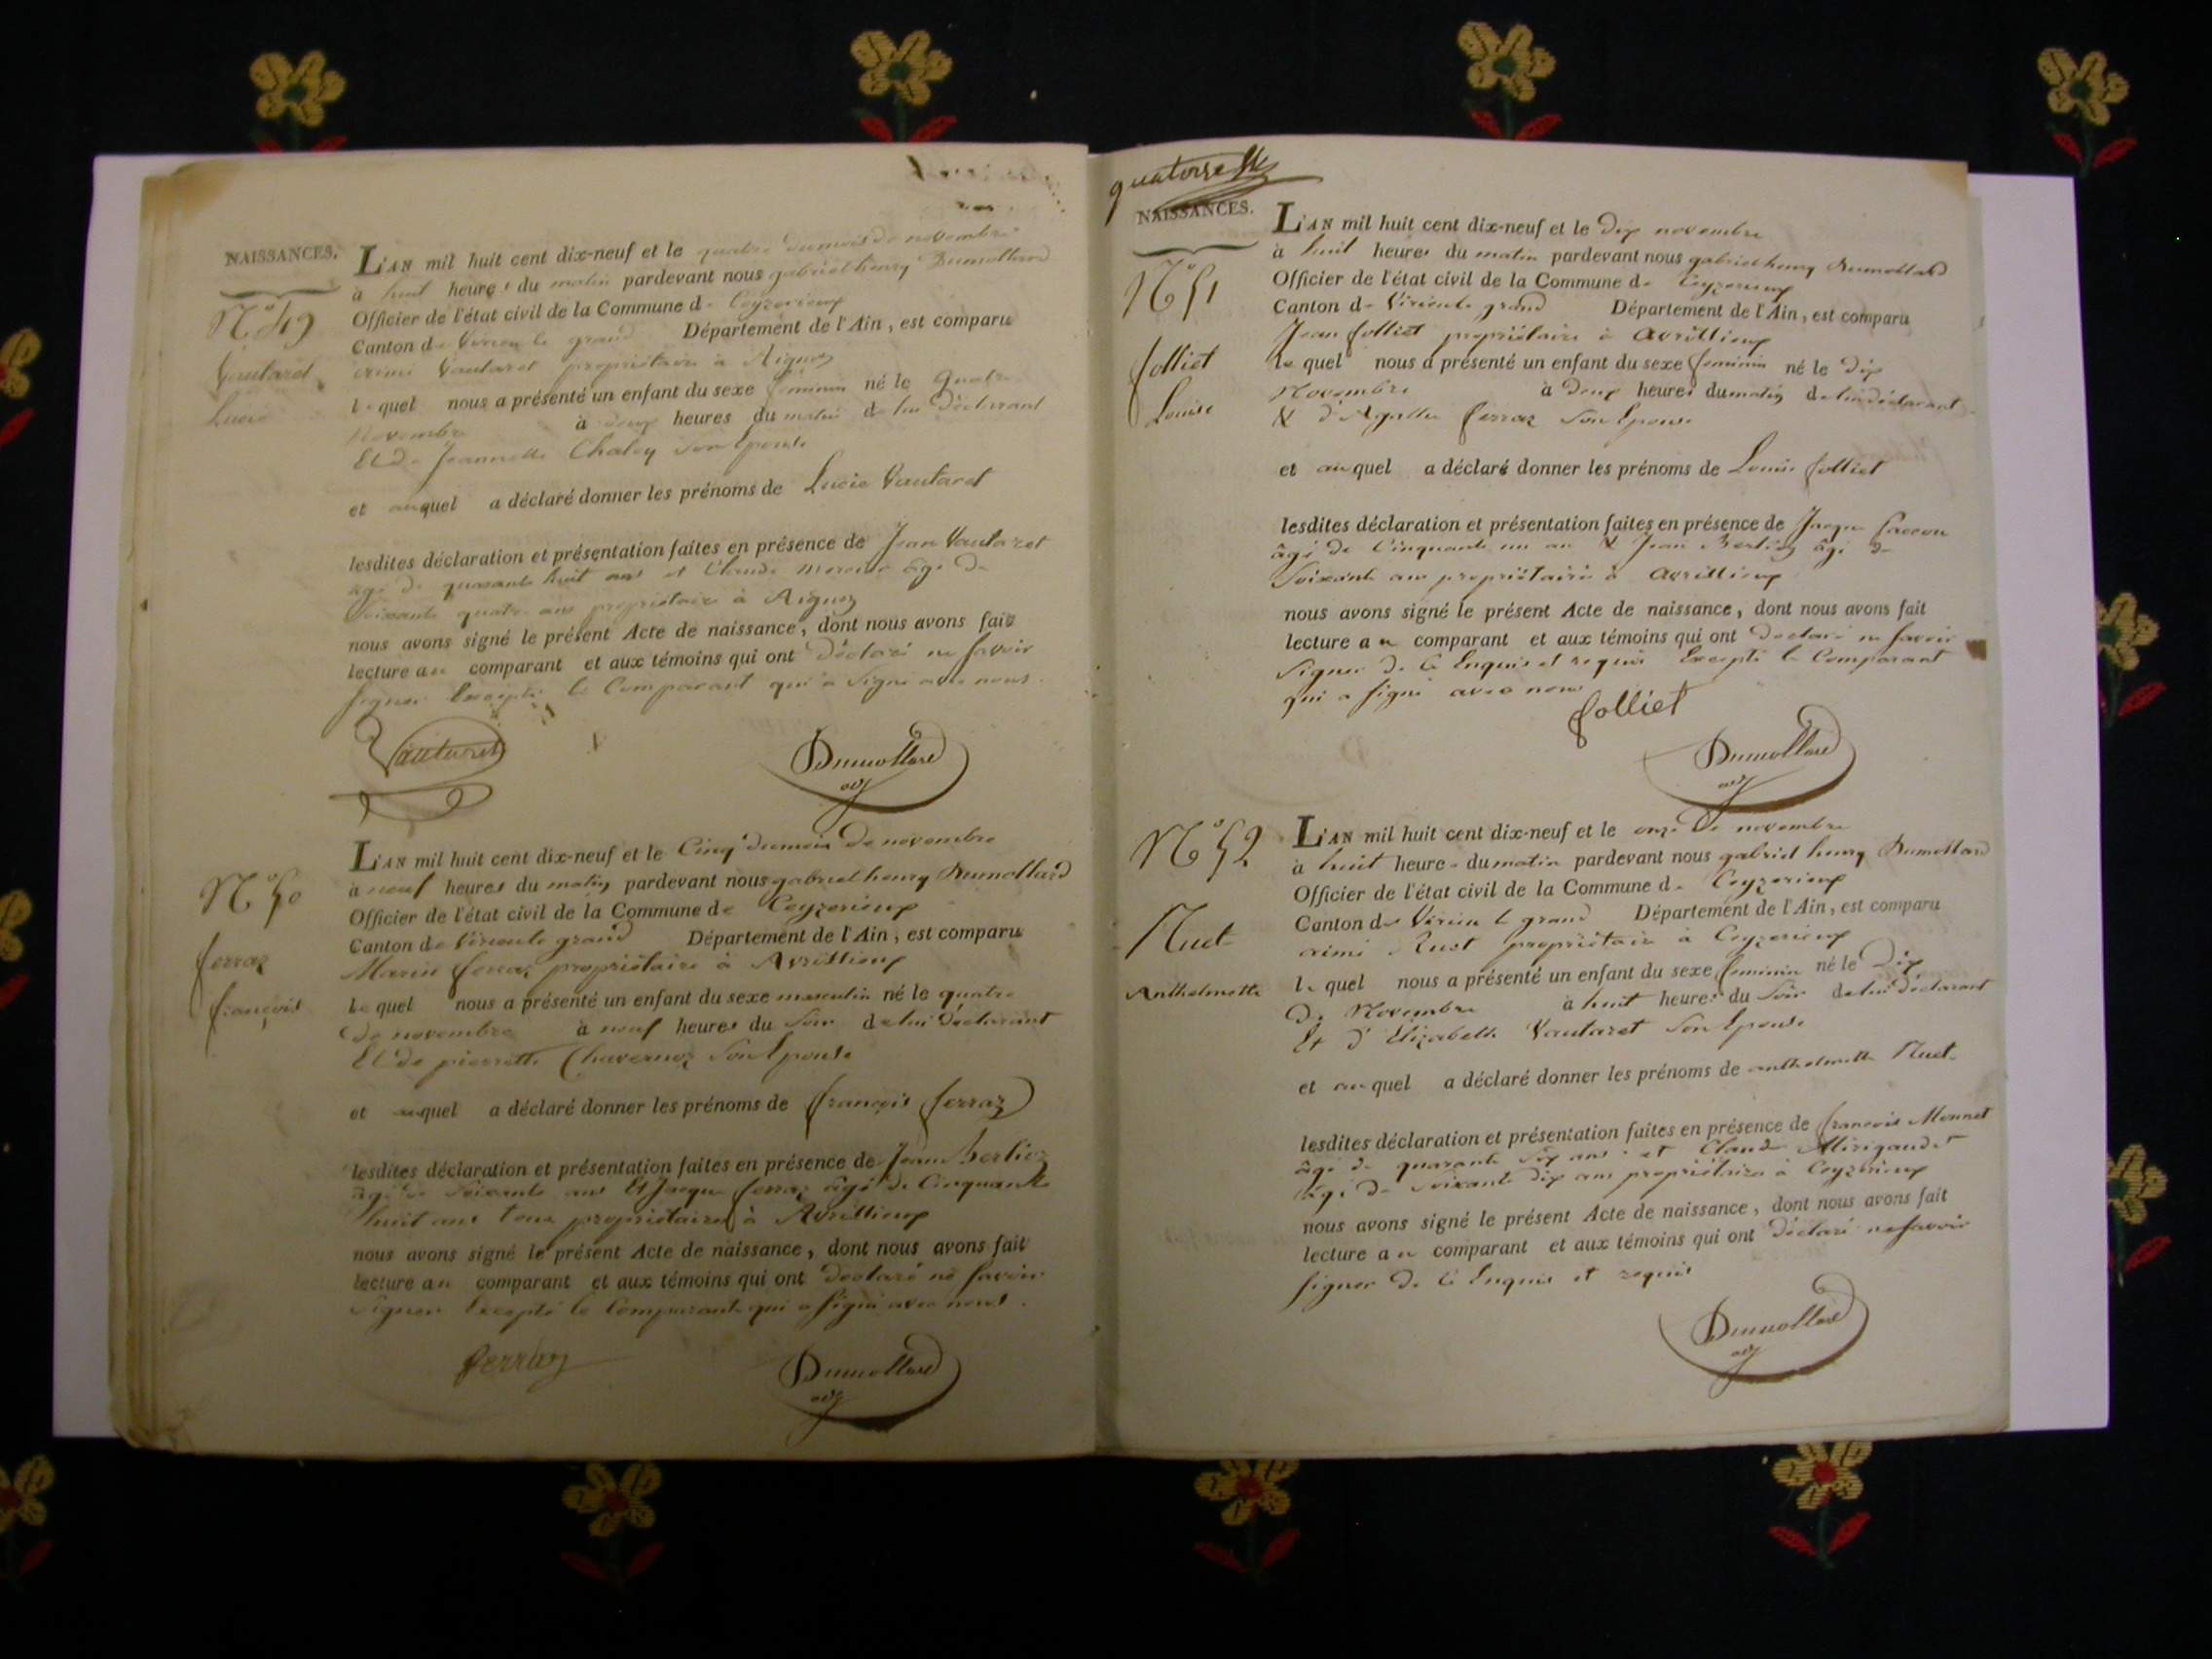 NAISSANCES.
N.° 49
Vautaret
Lucie
L'AN mil huit cent dix-neuf et le quatre du mois de novembre
à huit heures du matin pardevant nous gabriel henry Dumollard
Officier de l'état civil de la Commune de Ceyzerieux
Canton de Virieu le grand Département de l'Ain, est comparu
aimé Vautaret propriétaire à Aignoz
lequel nous a présenté un enfant du sexe féminin né le quatre
Novembre à deux heures du matin de lui déclarant
Et de Jeannette Chaley son Epouse
et auquel a déclaré donner les prénoms de Lucie Vautaret
lesdites déclaration et présentation faites en présence de Jean Vautaret
âgé de quarante huit ans et Claude Mercier âgé de
Soixante quatre ans propriétaire à Aignoz
nous avons signé le présent Acte de naissance, dont nous avons fait
lecture au comparant et aux témoins qui ont déclaré ne savoir
signer Excepté le Comparant qui a signé avec nous.
Vautaret
Dumollard
adj
N.° 50
ferraz
françois
L'AN mil huit cent dix-neuf et le Cinq du mois de novembre
à neuf heures du matin pardevant nous gabriel henry Dumollard
Officier de l'état civil de la Commune de Ceyzerieux
Canton de Virieu le grand Département de l'Ain, est comparu
Marin ferraz propriétaire à Avrissieux
lequel nous a présenté un enfant du sexe masculin né le quatre
de novembre à neuf heures du soir de lui déclarant
Et de pierrette Chavernoz son Epouse
et auquel a déclaré donner les prénoms de françois ferraz
lesdites déclaration et présentation faites en présence de Jean Berlioz
âgé de soixante ans Et Jaque ferraz âgé de Cinquante
huit ans tous propriétaires à Avrissieux
nous avons signé le présent Acte de naissance, dont nous avons fait
lecture au comparant et aux témoins qui ont déclaré ne savoir
signer Excepté le Comparant qui a signé avec nous.
ferraz
Dumollard
adj
quatorze
NAISSANCES.
N.° 51
folliet
Louise
L'AN mil huit cent dix-neuf et le dix novembre
à huit heures du matin pardevant nous gabriel henry Dumollard
Officier de l'état civil de la Commune de Ceyzerieux
Canton de Virieu le grand Département de l'Ain, est comparu
Jean folliet propriétaire à Avrissieux
lequel nous a présenté un enfant du sexe féminin né le dix
Novembre à deux heures du matin de lui déclarant
& d'Agathe ferraz son Epouse
et auquel a déclaré donner les prénoms de Louise folliet
lesdites déclaration et présentation faites en présence de Jaque
âgé de Cinquante un an & Jean Berlioz âgé de
Soixante ans propriétaires à avrissieux
nous avons signé le présent Acte de naissance, dont nous avons fait
lecture au comparant et aux témoins qui ont déclaré ne savoir
signer de ce Enquis et requis Excepté le Comparant
qui a signé avec nous
folliet
Dumollard
adj
N.° 52
Nuet
Anthelmette
L'AN mil huit cent dix-neuf et le onze de novembre
à huit heure du matin pardevant nous gabriel henry Dumollard
Officier de l'état civil de la Commune de Ceyzerieux
Canton de Virieu le grand Département de l'Ain, est comparu
aimé Nuet propriétaire à Ceyzerieux
lequel nous a présenté un enfant du sexe féminin né le Dix
de Novembre à huit heures du soir de lui déclarant
Et d'Elizabeth Vautaret son Epouse
et auquel a déclaré donner les prénoms de anthelmette Nuet
lesdites déclaration et présentation faites en présence de françois Monnet
âgé de quarante six ans et Claude
âgé de soixante dix ans propriétaires à Ceyzerieux
nous avons signé le présent Acte de naissance, dont nous avons fait
lecture au comparant et aux témoins qui ont déclaré ne savoir
signer de ce Enquis et requis
Dumollard
adj